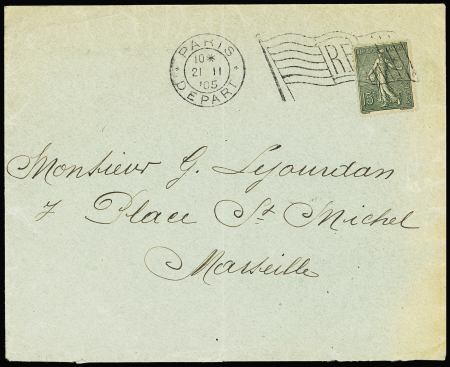 PARIS
10*
21 II
'05
DEPART
RF
15
Monsieur G. Lejourdan
7 Place St Michel
Marseille